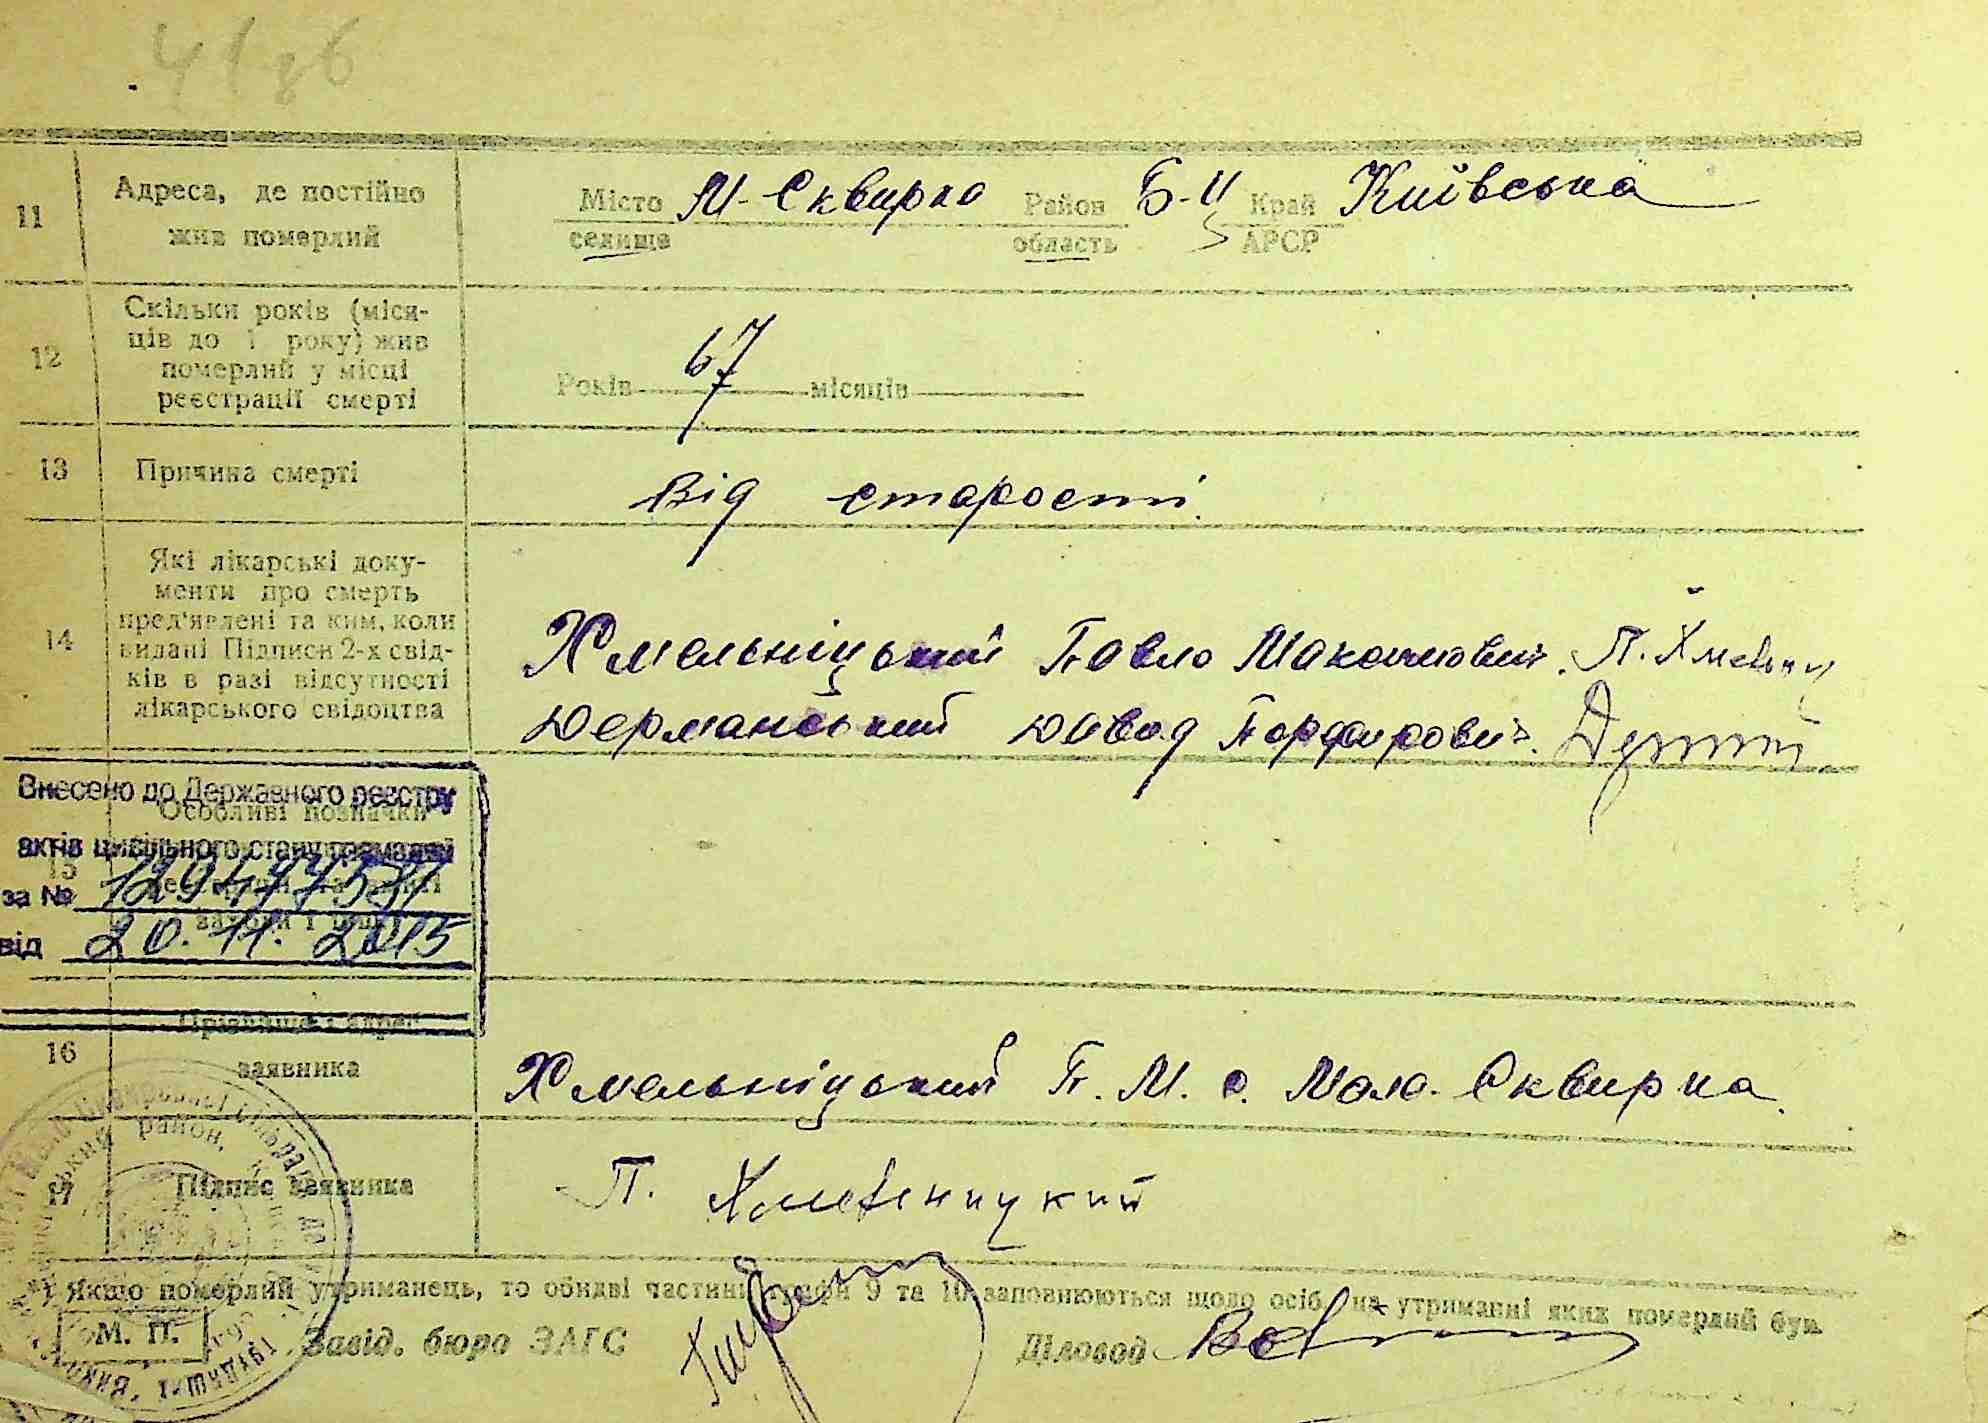 11
Адреса, де постійно
жив померлий
Місто М-Сквирка Район Б-Ц Край Київська
селище область АРСР
12
Скільки років (міся-
ців до 1 року) жив
померлий у місці
реєстрації смерті
Років 67 місяців
13
Причина смерті
Від старості.
14
Які лікарські доку-
менти про смерть
пред'явлені та ким, коли
видані Підписи 2-х свід-
ків в разі відсутності
лікарського свідоцтва
Хмельніцький Павло Максимович. П. Хмельниц
Дерманський Давод Порфирович.
Внесено до Державного реєстру
Особливі позначки
актів цивільного стану громадян
15
за №
від 20.11.2015
16
Прізвище і адрес
заявника
Хмельніцький П. М. с. Мала-Сквирка.
17
Підпис заявника
П. Хмельницкий
*) Якщо померлий утриманець, то обидві частини графи 9 та 10 заповнюються щодо осіб, на утриманні яких померлий був
М. П.
Завід. бюро ЗАГС
Діловод